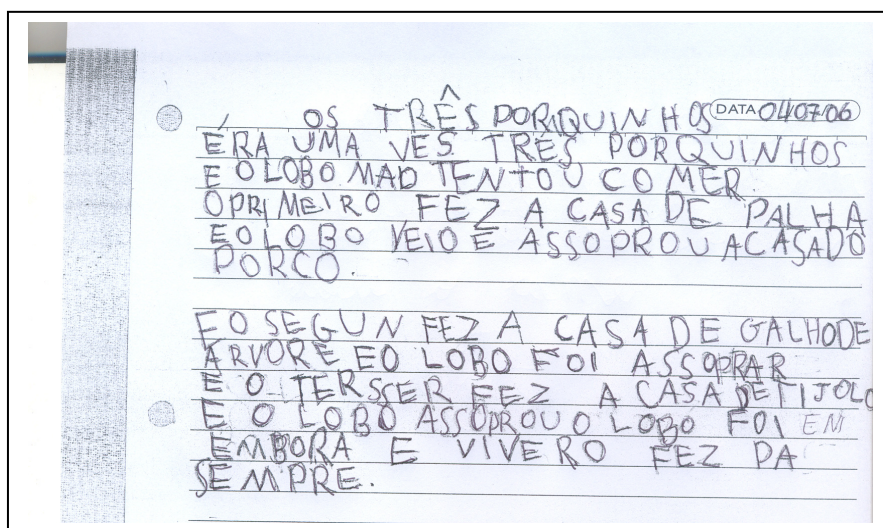 OS TRÊS PORQUINHOS DATA 04 07 06
ÉRA UMA VES TRÊS PORQUINHOS
E O LOBO MAD TENTOU COMER.
O PRIMEIRO FEZ A CASA DE PALHA
E O LOBO VEIO E ASSOPROU A CASA DO
PORCO.
E O SEGUN FEZ A CASA DE GALHO DE
ARVORE E O LOBO FOI ASSOPRAR
E O TERSSER FEZ A CASA DE TIJOLO
E O LOBO ASSOPROU O LOBO FOI EM
EMBORA E VIVERO FEZ PA
SEMPRE.